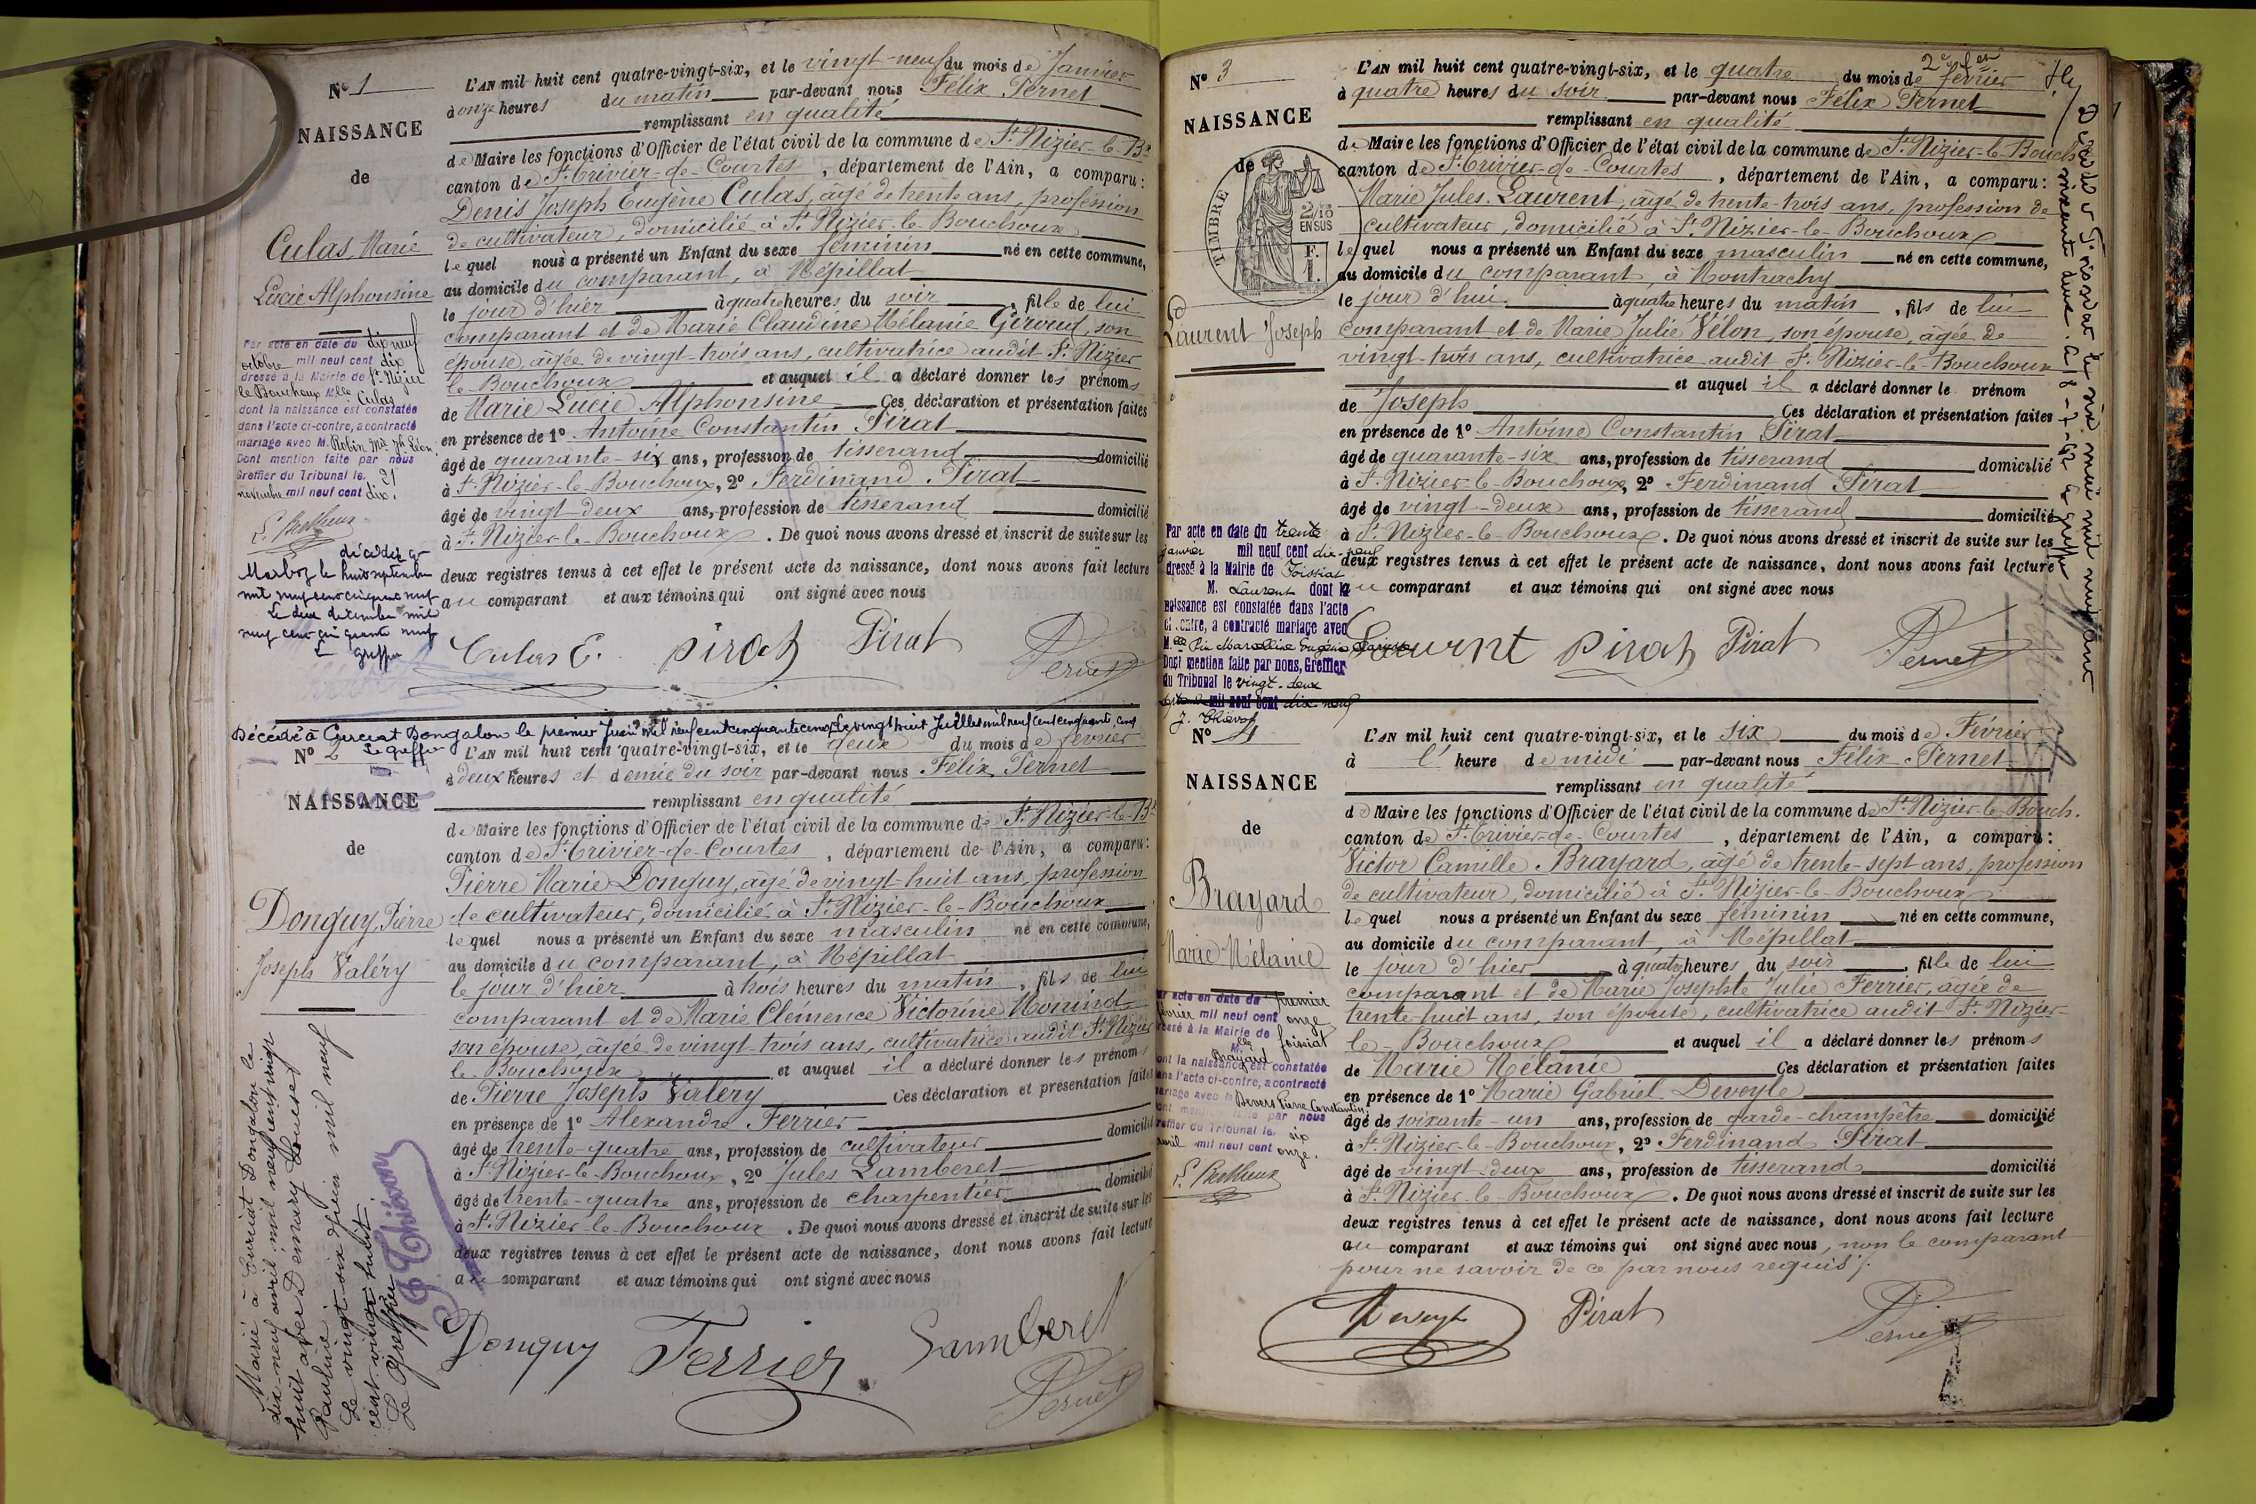 N° 1
NAISSANCE
de
Culas, Marie
Lucie Alphonsine
Par acte en date du dix neuf
octobre mil neuf cent dix
dressé à la Mairie de St Nizier
le Bouchoux Melle Culas
dont la naissance est constatée
dans l'acte ci-contre, a contracté
mariage avec M. Robin
Dont mention faite par nous
Greffier du Tribunal le 21
novembre mil neuf cent dix.
décédée à
Marboz le huit septembre
mil neuf cent cinquante neuf
Le deux décembre mil
neuf cent cinquante neuf
Le greffier
L'AN mil huit cent quatre-vingt-six, et le vingt-neuf du mois de Janvier
à onze heures du matin par-devant nous Félix Pernet
remplissant en qualité
de Maire les fonctions d'Officier de l'état civil de la commune de St Nizier-le-Bx
canton de St Trivier-de-Courtes, département de l'Ain, a comparu:
Denis Joseph Eugène Culas, âgé de trente ans, profession
de cultivateur, domicilié à St Nizier-le-Bouchoux
lequel nous a présenté un Enfant du sexe féminin né en cette commune,
au domicile du comparant, à Mépillat
le jour d'hier à quatre heures du soir, fille de lui
comparant et de Marie Claudine Mélanie Giroud, son
épouse, âgée de vingt-trois ans, cultivatrice audit St Nizier
le Bouchoux et auquel il a déclaré donner les prénoms
de Marie Lucie Alphonsine Ces déclaration et présentation faites
en présence de 1° Antoine Constantin Pirat
âgé de quarante-six ans, profession de tisserand domicilié
à St Nizier-le-Bouchoux, 2° Ferdinand Pirat
âgé de vingt-deux ans, profession de tisserand domicilié
à St Nizier-le-Bouchoux. De quoi nous avons dressé et inscrit de suite sur les
deux registres tenus à cet effet le présent acte de naissance, dont nous avons fait lecture
au comparant et aux témoins qui ont signé avec nous
Culas E. Pirat Pirat Pernet
Décédé à Curciat Dongalon le premier Juin mil neuf cent cinquante cinq Le vingt huit Juillet mil neuf cent cinquante cinq
Le greffier
N° 2
NAISSANCE
de
Donguy, Pierre
Joseph Valéry
Marié à Curciat Dongalon le
dix-neuf avril mil neuf cent vingt
huit avec Démary Louise
Pauline
Le vingt-six Juin mil neuf
cent vingt huit
Le Greffier
J. Thiévon
L'AN mil huit cent quatre-vingt-six, et le deux du mois de février
à deux heures et demie du soir par-devant nous Félix Pernet
remplissant en qualité
de Maire les fonctions d'Officier de l'état civil de la commune de St Nizier-le-Bx
canton de St Trivier-de-Courtes, département de l'Ain, a comparu:
Pierre Marie Donguy, âgé de vingt-huit ans, profession
de cultivateur, domicilié à St Nizier-le-Bouchoux
lequel nous a présenté un Enfant du sexe masculin né en cette commune,
au domicile du comparant, à Mépillat
le jour d'hier à trois heures du matin, fils de lui
comparant et de Marie Clémence Victorine
son épouse, âgée de vingt-trois ans, cultivatrice audit St Nizier
le Bouchoux et auquel il a déclaré donner les prénoms
de Pierre Joseph Valéry Ces déclaration et présentation faites
en présence de 1° Alexandre Ferrier
âgé de trente-quatre ans, profession de cultivateur domicilié
à St Nizier-le-Bouchoux, 2° Jules Lamberet
âgé de trente-quatre ans, profession de charpentier domicilié
à St Nizier-le-Bouchoux. De quoi nous avons dressé et inscrit de suite sur les
deux registres tenus à cet effet le présent acte de naissance, dont nous avons fait lecture
au comparant et aux témoins qui ont signé avec nous
Donguy Ferrier Lamberet
Pernet
N° 3
NAISSANCE
de
TIMBRE
2/10
EN SUS
F.
1
Laurent Joseph
Par acte en date du trente
janvier mil neuf cent dix-neuf
dressé à la Mairie de Foissiat
M. Laurent dont la
naissance est constatée dans l'acte
ci contre, a contracté mariage avec
Melle Pin Marceline Eugénie
Dont mention faite par nous, Greffier
du Tribunal le vingt-deux
mil neuf cent dix neuf
J. Thiévon
2e fer
L'AN mil huit cent quatre-vingt-six, et le quatre du mois de février
à quatre heures du soir par-devant nous Félix Pernet
remplissant en qualité
de Maire les fonctions d'Officier de l'état civil de la commune de St Nizier-le-Bouch.
canton de St Trivier-de-Courtes, département de l'Ain, a comparu:
Marie Jules Laurent, âgé de trente-trois ans, profession de
cultivateur, domicilié à St Nizier-le-Bouchoux
lequel nous a présenté un Enfant du sexe masculin né en cette commune,
au domicile du comparant, à Montrachy
le jour d'hui à quatre heures du matin, fils de lui
comparant et de Marie Julie Vélon, son épouse, âgée de
vingt-trois ans, cultivatrice audit St Nizier-le-Bouchoux
et auquel il a déclaré donner le prénom
de Joseph Ces déclaration et présentation faites
en présence de 1° Antoine Constantin Pirat
âgé de quarante-six ans, profession de tisserand domicilié
à St Nizier-le-Bouchoux, 2° Ferdinand Pirat
âgé de vingt-deux ans, profession de tisserand domicilié
à St Nizier-le-Bouchoux. De quoi nous avons dressé et inscrit de suite sur les
deux registres tenus à cet effet le présent acte de naissance, dont nous avons fait lecture
au comparant et aux témoins qui ont signé avec nous
Laurent Pirat Pirat Pernet
Décédé à Foissiat le six mai mil neuf cent
soixante deux. Le greffier
N° 4
NAISSANCE
de
Brayard
Marie Mélanie
Par acte en date du premier
février mil neuf cent onze
dressé à la Mairie de Foissiat
Melle Brayard
dont la naissance est constatée
dans l'acte ci-contre, a contracté
mariage avec M. Devers Pierre Constantin
Dont mention faite par nous
Greffier du Tribunal le six
avril mil neuf cent onze.
L'AN mil huit cent quatre-vingt-six, et le six du mois de Février
à l'heure de midi par-devant nous Félix Pernet
remplissant en qualité
de Maire les fonctions d'Officier de l'état civil de la commune de St Nizier-le-Bouch.
canton de St Trivier-de-Courtes, département de l'Ain, a comparu:
Victor Camille Brayard, âgé de trente-sept ans, profession
de cultivateur, domicilié à St Nizier-le-Bouchoux
lequel nous a présenté un Enfant du sexe féminin né en cette commune,
au domicile du comparant, à Mépillat
le jour d'hier à quatre heures du soir, fille de lui
comparant et de Marie Josephte Julie Ferrier, âgée de
trente-huit ans, son épouse, cultivatrice audit St Nizier-
le-Bouchoux et auquel il a déclaré donner les prénoms
de Marie Mélanie Ces déclaration et présentation faites
en présence de 1° Marie Gabriel Deveyle
âgé de soixante-un ans, profession de garde-champêtre domicilié
à St Nizier-le-Bouchoux, 2° Ferdinand Pirat
âgé de vingt-deux ans, profession de tisserand domicilié
à St Nizier-le-Bouchoux. De quoi nous avons dressé et inscrit de suite sur les
deux registres tenus à cet effet le présent acte de naissance, dont nous avons fait lecture
au comparant et aux témoins qui ont signé avec nous, non le comparant
pour ne savoir de ce par nous requis.
Deveyle Pirat Pernet